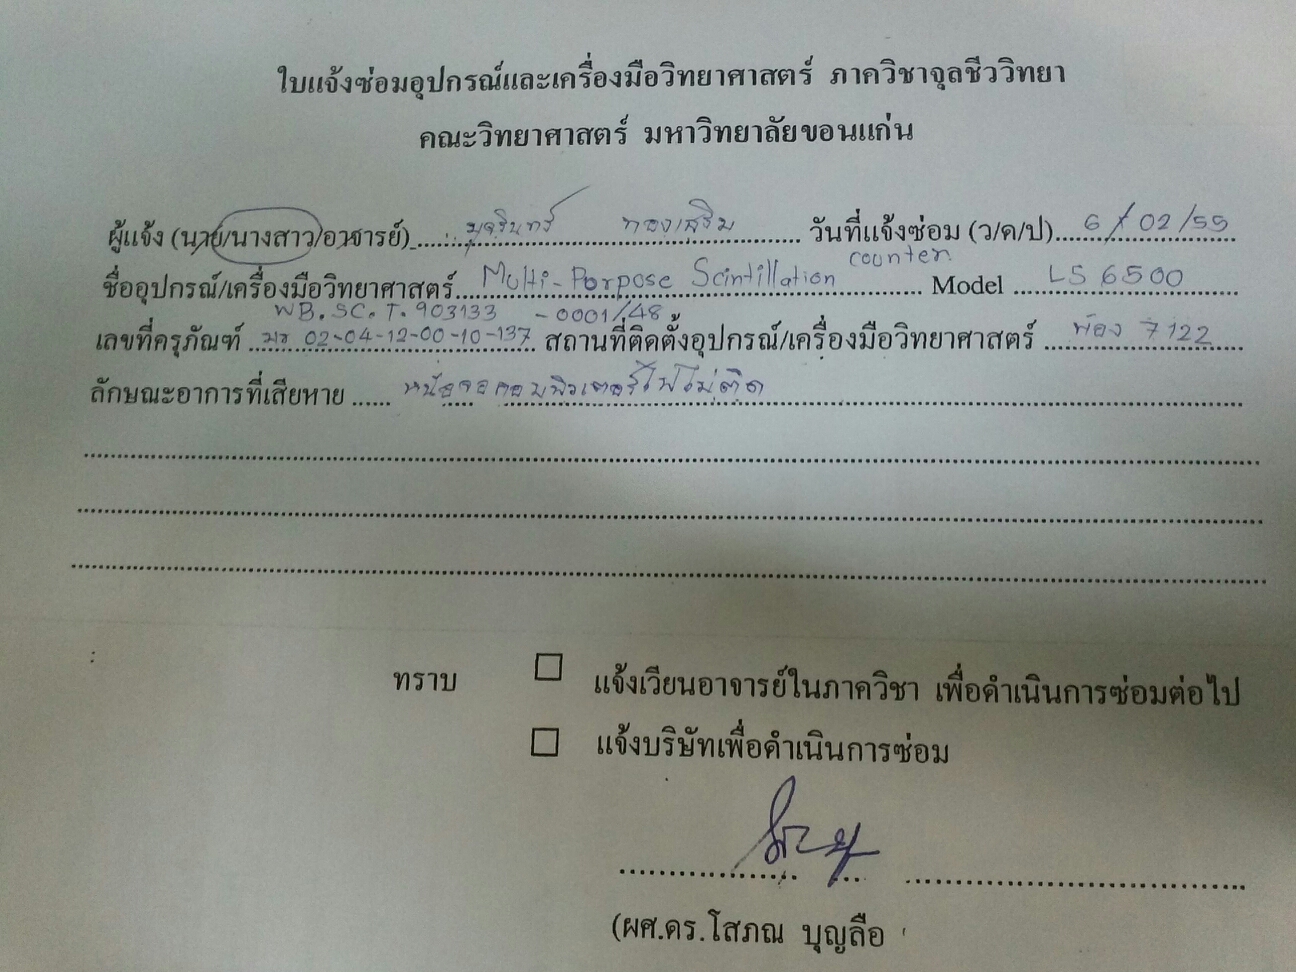 ใบแจ้งซ่อมอุปกรณ์และเครื่องมือวิทยาศาสตร์ ภาควิชาจุลชีววิทยา
คณะวิทยาศาสตร์ มหาวิทยาลัยขอนแก่น
ผู้แจ้ง (นาย/นางสาว/อาจารย์) มุจรินทร์ ทองเสริม วันที่แจ้งซ่อม (ว/ด/ป) 6/02/55
ชื่ออุปกรณ์/เครื่องมือวิทยาศาสตร์ Multi-Purpose Scintillation counter Model LS 6500
WB.SC.T.903133 -0001/48
เลขที่ครุภัณฑ์ มข 02-04-12-00-10-137 สถานที่ติดตั้งอุปกรณ์/เครื่องมือวิทยาศาสตร์ ห้อง 7122
ลักษณะอาการที่เสียหาย หน้าจอคอมพิวเตอร์ไฟไม่ติด
ทราบ แจ้งเวียนอาจารย์ในภาควิชา เพื่อดำเนินการซ่อมต่อไป
แจ้งบริษัทเพื่อดำเนินการซ่อม
(ผศ.ดร.โสภณ บุญลือ